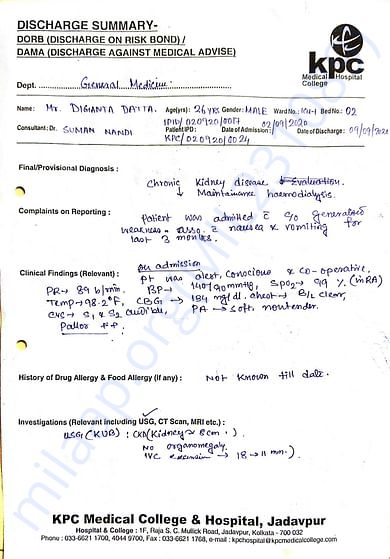 DISCHARGE SUMMARY-
DORB (DISCHARGE ON RISK BOND) /
DAMA (DISCHARGE AGAINST MEDICAL ADVISE)
kpc
Medical Hospital
College
Dept. General Medicine.
Name: Mr. DIGANTA DATTA. Age(yrs): 26 YRS Gender: MALE Ward No.: Bed No.: 02
Consultant: Dr. SUMAN NANDI IPID/020920/0017 02/09/2020
Patient IPD: Date of Admission: Date of Discharge: 09/09/2020
KPC/020920/0024
Final/Provisional Diagnosis :
Chronic Kidney disease Evaluation.
↓ Maintainance haemodialysis.
Complaints on Reporting :
Patient was admitted c c/o generalised
weakness asso. c nausea & vomiting for
last 3 months.
on admission
Clinical Findings (Relevant) : Pt was alert, conscious & co-operative.
PR→ 89 b/min. BP→ 140/90mmHg, SpO2→ 99 % (in RA)
Temp→98.2°F, CBG → 184 mg/dl. chest→ B/L clear,
CVS→ S1 & S2 audible, PA → soft, nontender.
Pallor ++.
History of Drug Allergy & Food Allergy (if any) : Not Known till date.
Investigations (Relevant including USG, CT Scan, MRI etc.) :
USG (KUB) : CKD (Kidney ≈ 8cm ).
No organomegaly.
IVC → 18→11 mm.
KPC Medical College & Hospital, Jadavpur
Hospital & College : 1F, Raja S. C. Mullick Road, Jadavpur, Kolkata - 700 032
Phone : 033-6621 1700, 4044 9700, Fax : 033-6621 1768, e-mail : kpchospital@kpcmedicalcollege.com